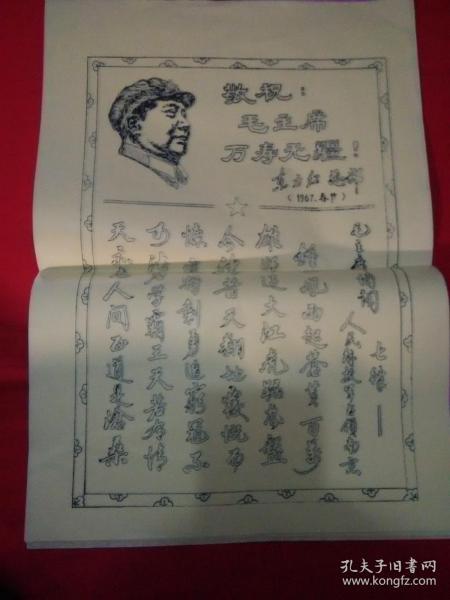 敬祝：
毛主席
万寿无疆！
东方红总部
（1967.春节）
毛主席诗词
七律——
人民解放军占领南京
鍾山風雨起蒼黄百萬
雄師過大江虎踞龍盤
今勝昔天翻地覆慨而
慷宜將剩勇追窮寇不
可沽名學霸王天若有情
天亦老人間正道是滄桑
孔夫子旧书网
www.kongfz.com